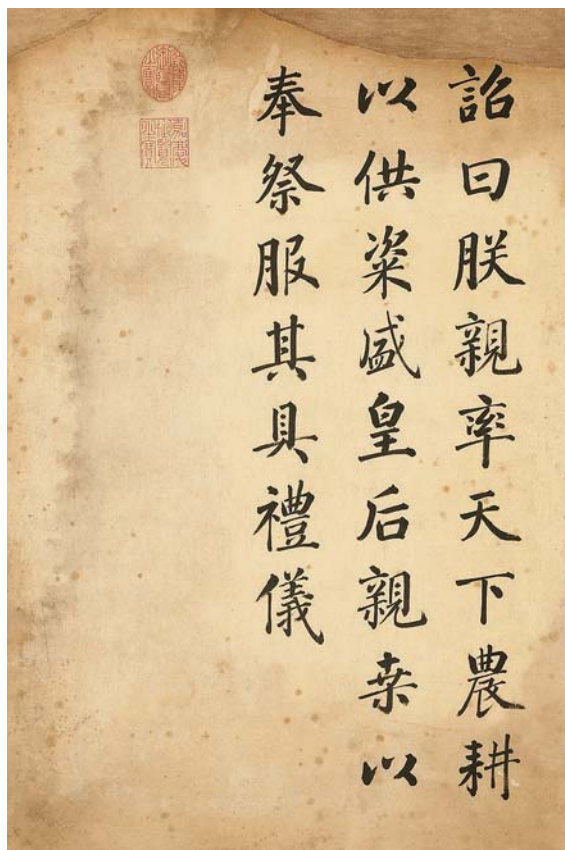 詔曰朕親率天下農耕
以供粢盛皇后親桒以
奉祭服其具禮儀